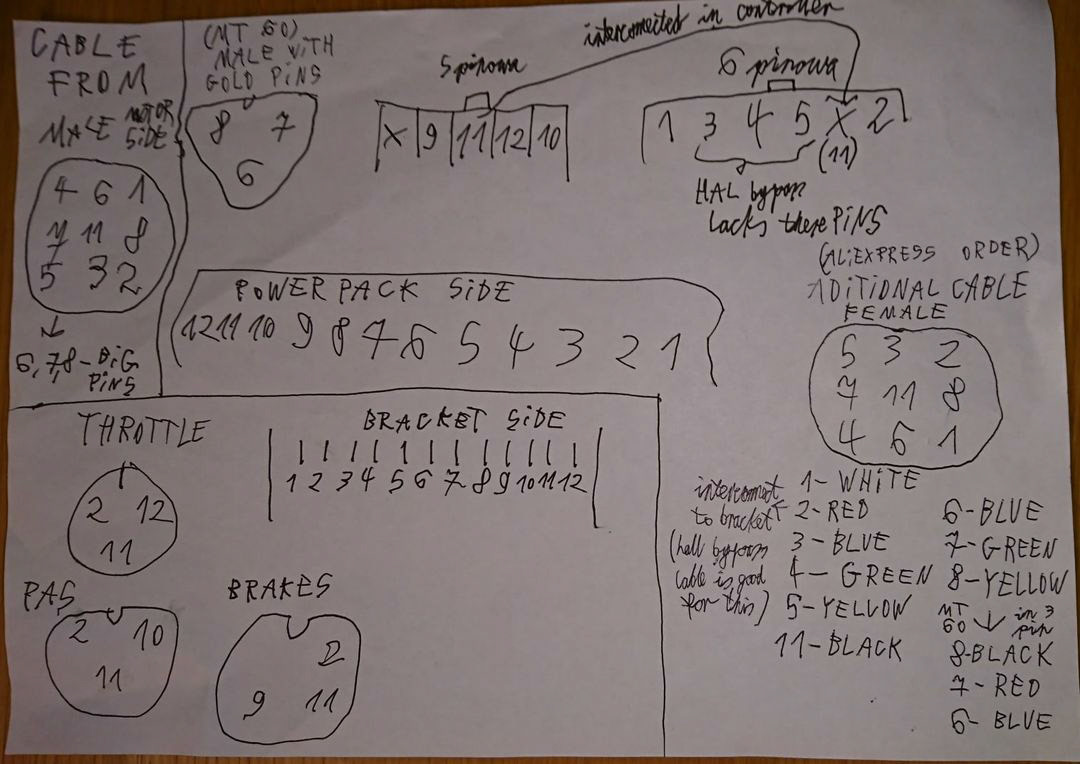 CABLE
FROM
MOTOR
MALE SIDE
4 6 1
7 11 8
5 3 2
6,7,8-BIG
PINS
(MT 60)
MALE WITH
GOLD PINS
8 7
6
5 pinowa
X 9 11 12 10
interconnected in controller
6 pinowa
1 3 4 5 X 2
(11)
HAL bypass
lacks these PINS
POWER PACK SIDE
12 11 10 9 8 7 6 5 4 3 2 1
(ALIEXPRESS ORDER)
ADITIONAL CABLE
FEMALE
5 3 2
7 11 8
4 6 1
THROTTLE
2 12
11
BRACKET SIDE
1 2 3 4 5 6 7 8 9 10 11 12
PAS
2 10
11
BRAKES
2
9 11
interconnect
to bracket
(hall bypass
cable is good
for this)
1- WHITE
2- RED
3 - BLUE
4 - GREEN
5- YELLOW
11 - BLACK
6-BLUE
7- GREEN
8-YELLOW
MT 60 in 3 pin
8-BLACK
7 - RED
6 - BLUE